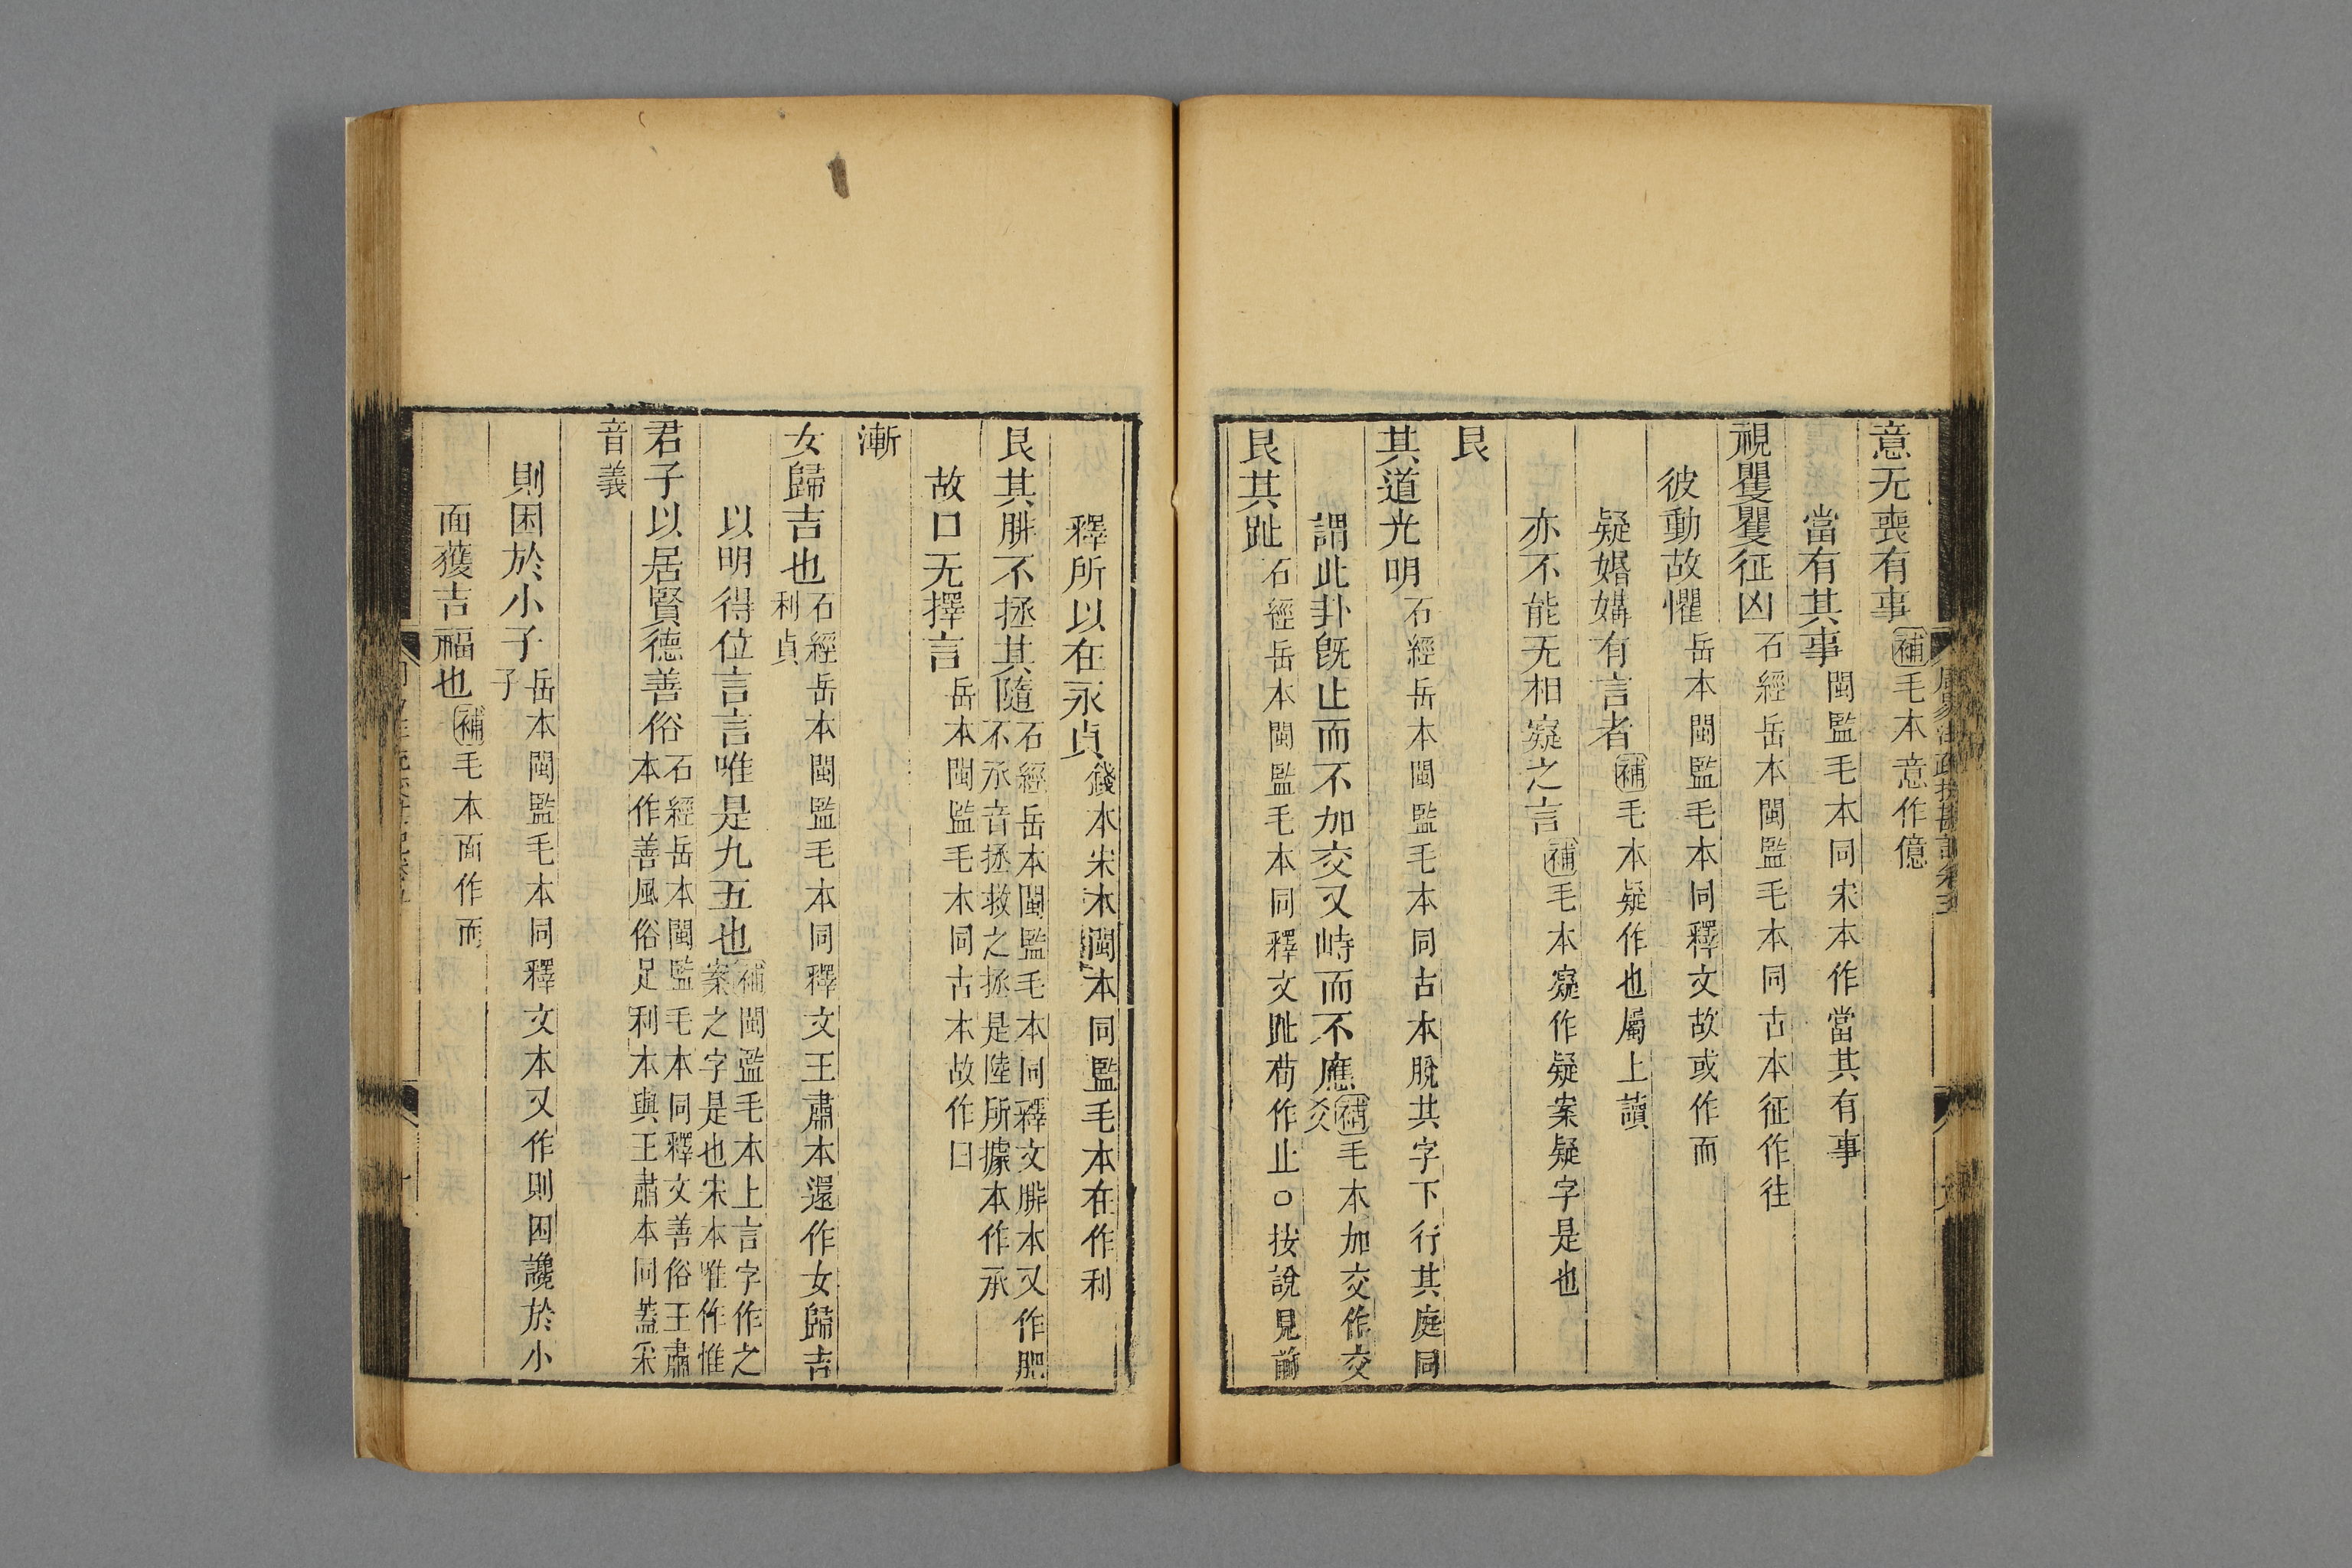 意无喪有事補毛本意作億
當有其事閩監毛本同宋本作當其有事
視矍矍征凶石經岳本閩監毛本同古本征作往
彼動故懼岳本閩監毛本同釋文故或作而
疑婚媾有言者補毛本疑作也屬上讀
亦不能无相㝷之言補毛本㝷作疑案疑字是也
艮
其道光明石經岳本閩監毛本同古本脫其字下行其庭同
謂此卦旣止而不加交又峙而不應爻補毛本加交作交
艮其趾石經岳本閩監毛本同釋文趾荀作止○按說見前
釋所以在永貞錢本宋本閩本同監毛本在作利
艮其腓不拯其隨石經岳本閩監毛本同釋文腓本又作肥
不承音拯救之拯是陸所據本作承
故口无擇言岳本閩監毛本同古本故作曰
漸
女歸吉也石經岳本閩監毛本同釋文王肅本還作女歸吉
利貞
以明得位言言唯是九五也補閩監毛本上言字作之
案之字是也宋本唯作惟
君子以居賢德善俗石經岳本閩監毛本同釋文善俗王肅
本作善風俗足利本與王肅本同蓋采
音義
則困於小子岳本閩監毛本同釋文本又作則困讒於小
子
面獲吉福也補毛本面作而